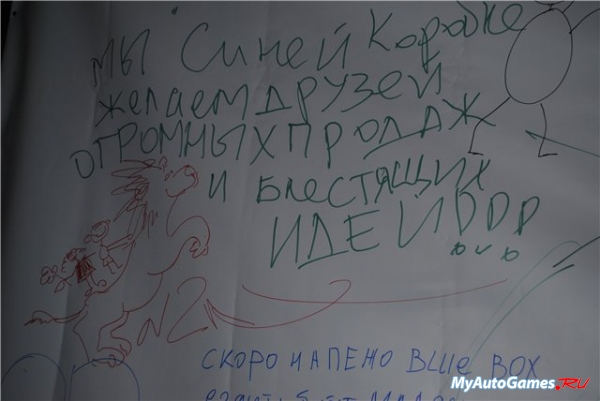 мы Синей Коробке
желаем друзей
ОГРОМНЫХ ПРОДАЖ
и БЛЕСТЯЩИХ
ИДЕЙ!!!
N2N
СКОРО НАПЕНО BLUE BOX
MyAutoGames.RU